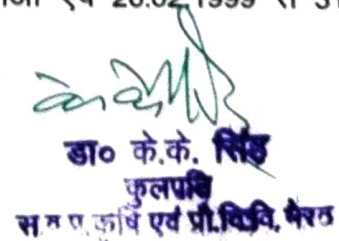 एवं 26.02.1999 से 31
डा० के.के. सिंह
कुलपति
कृषि एवं प्रौ.वि.वि, मेरठ